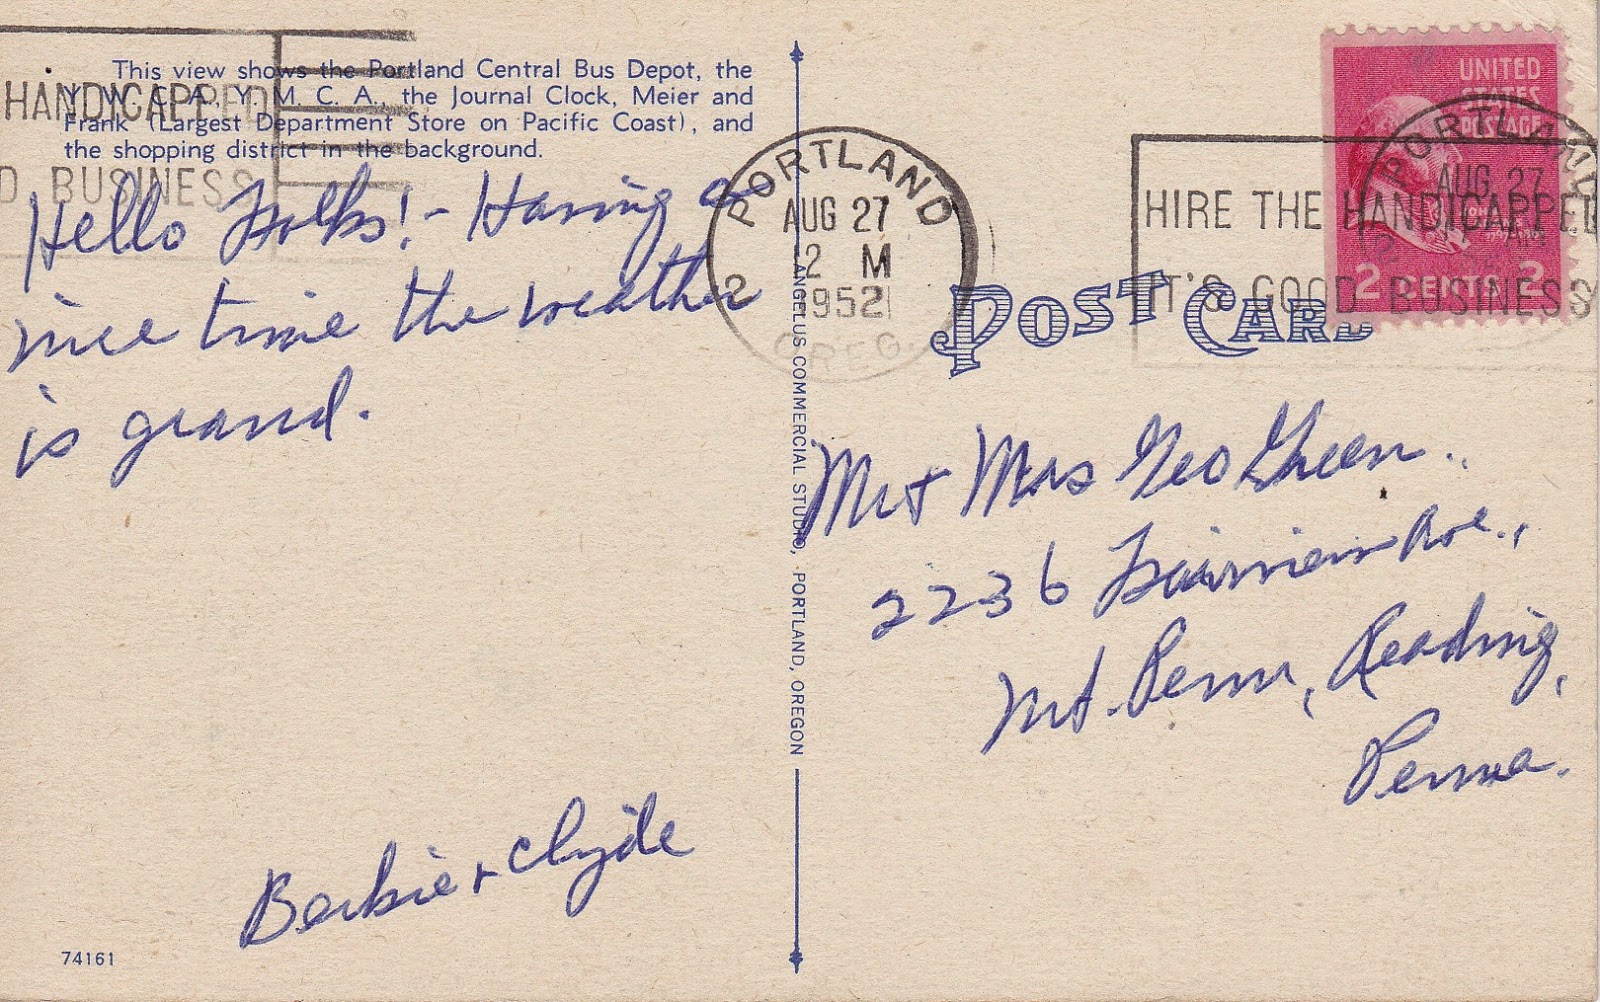 This view shows the Portland Central Bus Depot, the
Y. W. C. A., Y. M. C. A., the Journal Clock, Meier and
Frank (Largest Department Store on Pacific Coast), and
the shopping district in the background.
HANDICAPPED
D BUSINESS
Hello Folks! - Having a
nice time the weather
is grand.
Barbie + Clyde
74161
ANGELUS COMMERCIAL STUDIO, PORTLAND, OREGON
PORTLAND
AUG 27
2 M
1952
2
OREG.
HIRE THE HANDICAPPED
IT'S GOOD BUSINESS
UNITED
STATES
POSTAGE
2 CENTS 2
PORTLAND
AUG. 27
POST CARD
Mr + Mrs Geo Green.
2236 Fairview Ave.,
Mt. Penn, Reading,
Penna.